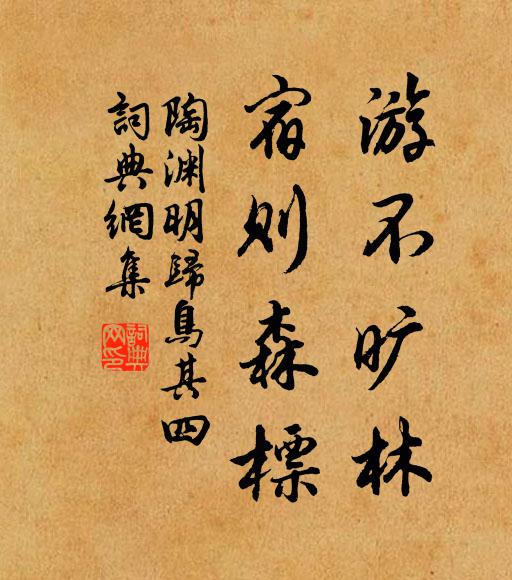 游不旷林
宿则森標
陶渊明歸鳥其四
詞典網集
詞典網印